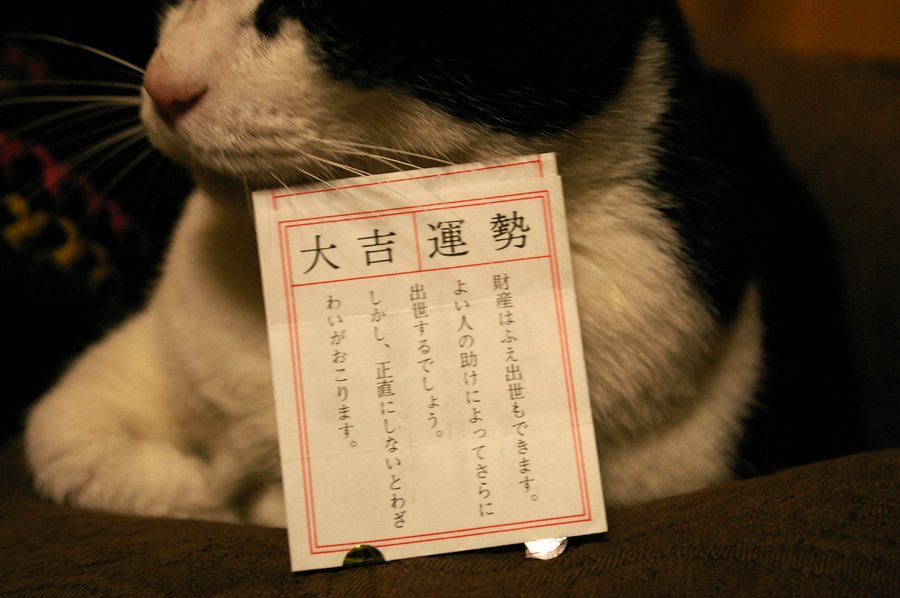 運勢
大吉
財産はふえ出世もできます。
よい人の助けによってさらに
出世するでしょう。
しかし、正直にしないとわざ
わいがおこります。